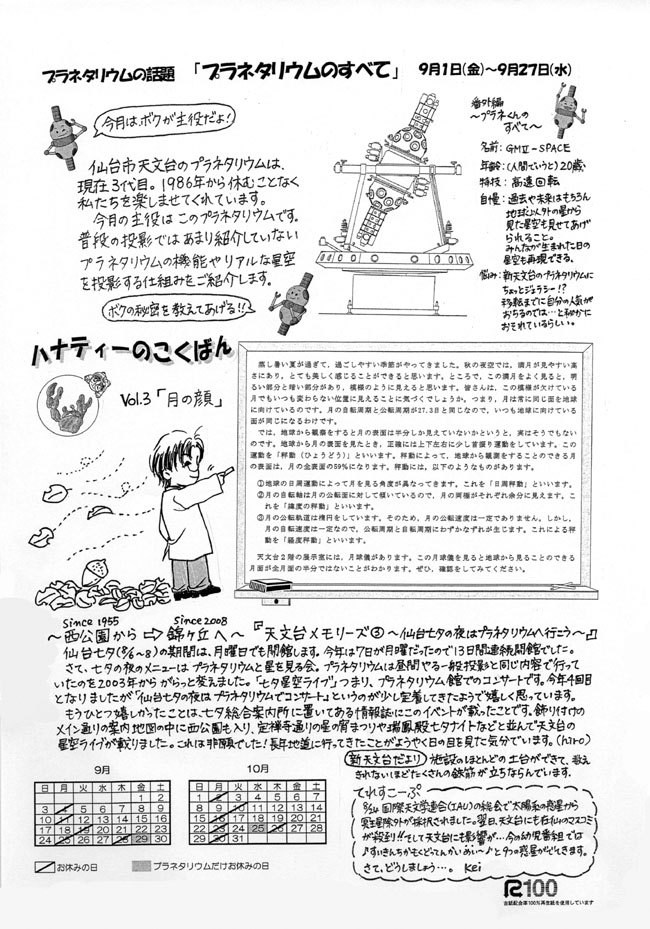 プラネタリウムの話題 「プラネタリウムのすべて」 9月1日(金)~9月27日(水)
今月は、ボクが主役だよ!
仙台市天文台のプラネタリウムは、
現在3代目。1986年から休むことなく
私たちを楽しませてくれています。
今月の主役はこのプラネタリウムです。
普段の投影ではあまり紹介していない
プラネタリウムの機能やリアルな星空
を投影する仕組みをご紹介します。
ボクの秘密を教えてあげる!!
番外編
~プラネくんの
すべて~
名前:GMⅡ-SPACE
年齢:(人間でいうと)20歳
特技:高速回転
自慢:過去や未来はもちろん
地球以外の星から
見た星空も見せてあげ
られること。
みんなが生まれた日の
星空も再現できる。
悩み:新天文台のプラネタリウムに
ちょっとジェラシー!?
移転までに自分の人気が
おちるのでは…と秘かに
おそれているらしい。
ハナティーのこくばん
Vol.3「月の顔」
蒸し暑い夏が過ぎて、過ごしやすい季節がやってきました。秋の夜空では、満月が見やすい高
さにあり、とても美しく感じることができると思います。ところで、この満月をよく見ると、明
るい部分と暗い部分があり、模様のように見えると思います。皆さんは、この模様が欠けている
月でもいつも変わらない位置に見えることに気づくでしょうか。つまり、月は常に同じ面を地球
に向けているのです。月の自転周期と公転周期が27.3日と同じなので、いつも地球に向けている
面が同じになるわけです。
では、地球から観察をすると月の表面は半分しか見えていないかというと、実はそうでもない
のです。地球から月の表面を見たとき、正確には上下左右に少し首振り運動をしています。この
運動を「秤動(ひょうどう)」といいます。秤動によって、地球から観測をすることのできる月
の表面は、月の全表面の59%になります。秤動には、以下のようなものがあります。
①地球の日周運動によって月を見る角度が異なってきます。これを「日周秤動」といいます。
②月の自転軸は月の公転面に対して傾いているので、月の両極がそれぞれ余分に見えます。こ
れを「緯度の秤動」といいます。
③月の公転軌道は楕円をしています。そのため、月の公転速度は一定でありません。しかし、
月の自転速度は一定なので、公転周期と自転周期にわずかなずれが生じます。これによる秤
動を「経度秤動」といいます。
天文台2階の展示室には、月球儀があります。この月球儀を見ると地球から見ることのできる
月面が全月面の半分ではないことがわかります。ぜひ、確認をしてみてください。
Since 1955 Since 2008
~西公園から⇨錦ヶ丘へ~『天文台メモリーズ③~仙台七夕の夜はプラネタリウムへ行こう~』
仙台七夕(8/6~8)の期間は、月曜日でも開館します。今年は7日が月曜だったので13日間連続開館でした。
さて、七夕の夜のメニューはプラネタリウムと星を見る会。プラネタリウムは昼間やる一般投影と同じ内容で行って
いたのを2003年からがらっと変えました。「七夕星空ライブ」つまり、プラネタリウム館でのコンサートです。今年4回目
となりましたが「仙台七夕の夜はプラネタリウムでコンサート」というのが少し定着してきたようで嬉しく思っています。
もうひとつ嬉しかったことは、七夕総合案内所に置いてある情報誌にこのイベントが載ったことです。飾りつけの
メイン通りの案内地図の中に西公園も入り、定禅寺通りの星の宵まつりや瑞鳳殿七夕ナイトなどと並んで天文台の
星空ライブが載りました。これは非願でした!長年地道に行ってきたことがようやく日の目を見た気分です。(hiro)
新天文台だより 施設のほとんどの土台ができて、数え
きれないほどたくさんの鉄筋が立ちならんでいます。
てれすこーぷ
8/24 国際天文学連合(IAU)の総会で太陽系の惑星から
冥王星除外が採択されました。翌日、天文台にも在仙のマスコミ
が殺到!!そして天文台にも影響が…今の幼児番組では
♪すいきんちかもくどってんかいめい~♪と9つの惑星がでてきます。
さて、どうしましょう…。 Kei
9月
日 月 火 水 木 金 土
1 2
3 4 5 6 7 8 9
10 11 12 13 14 15 16
17 18 19 20 21 22 23
24 25 26 27 28 29 30
10月
日 月 火 水 木 金 土
1 2 3 4 5 6 7
8 9 10 11 12 13 14
15 16 17 18 19 20 21
22 23 24 25 26 27 28
29 30 31
お休みの日 プラネタリウムだけお休みの日
R100
古紙配合率100%再生紙を使用しています